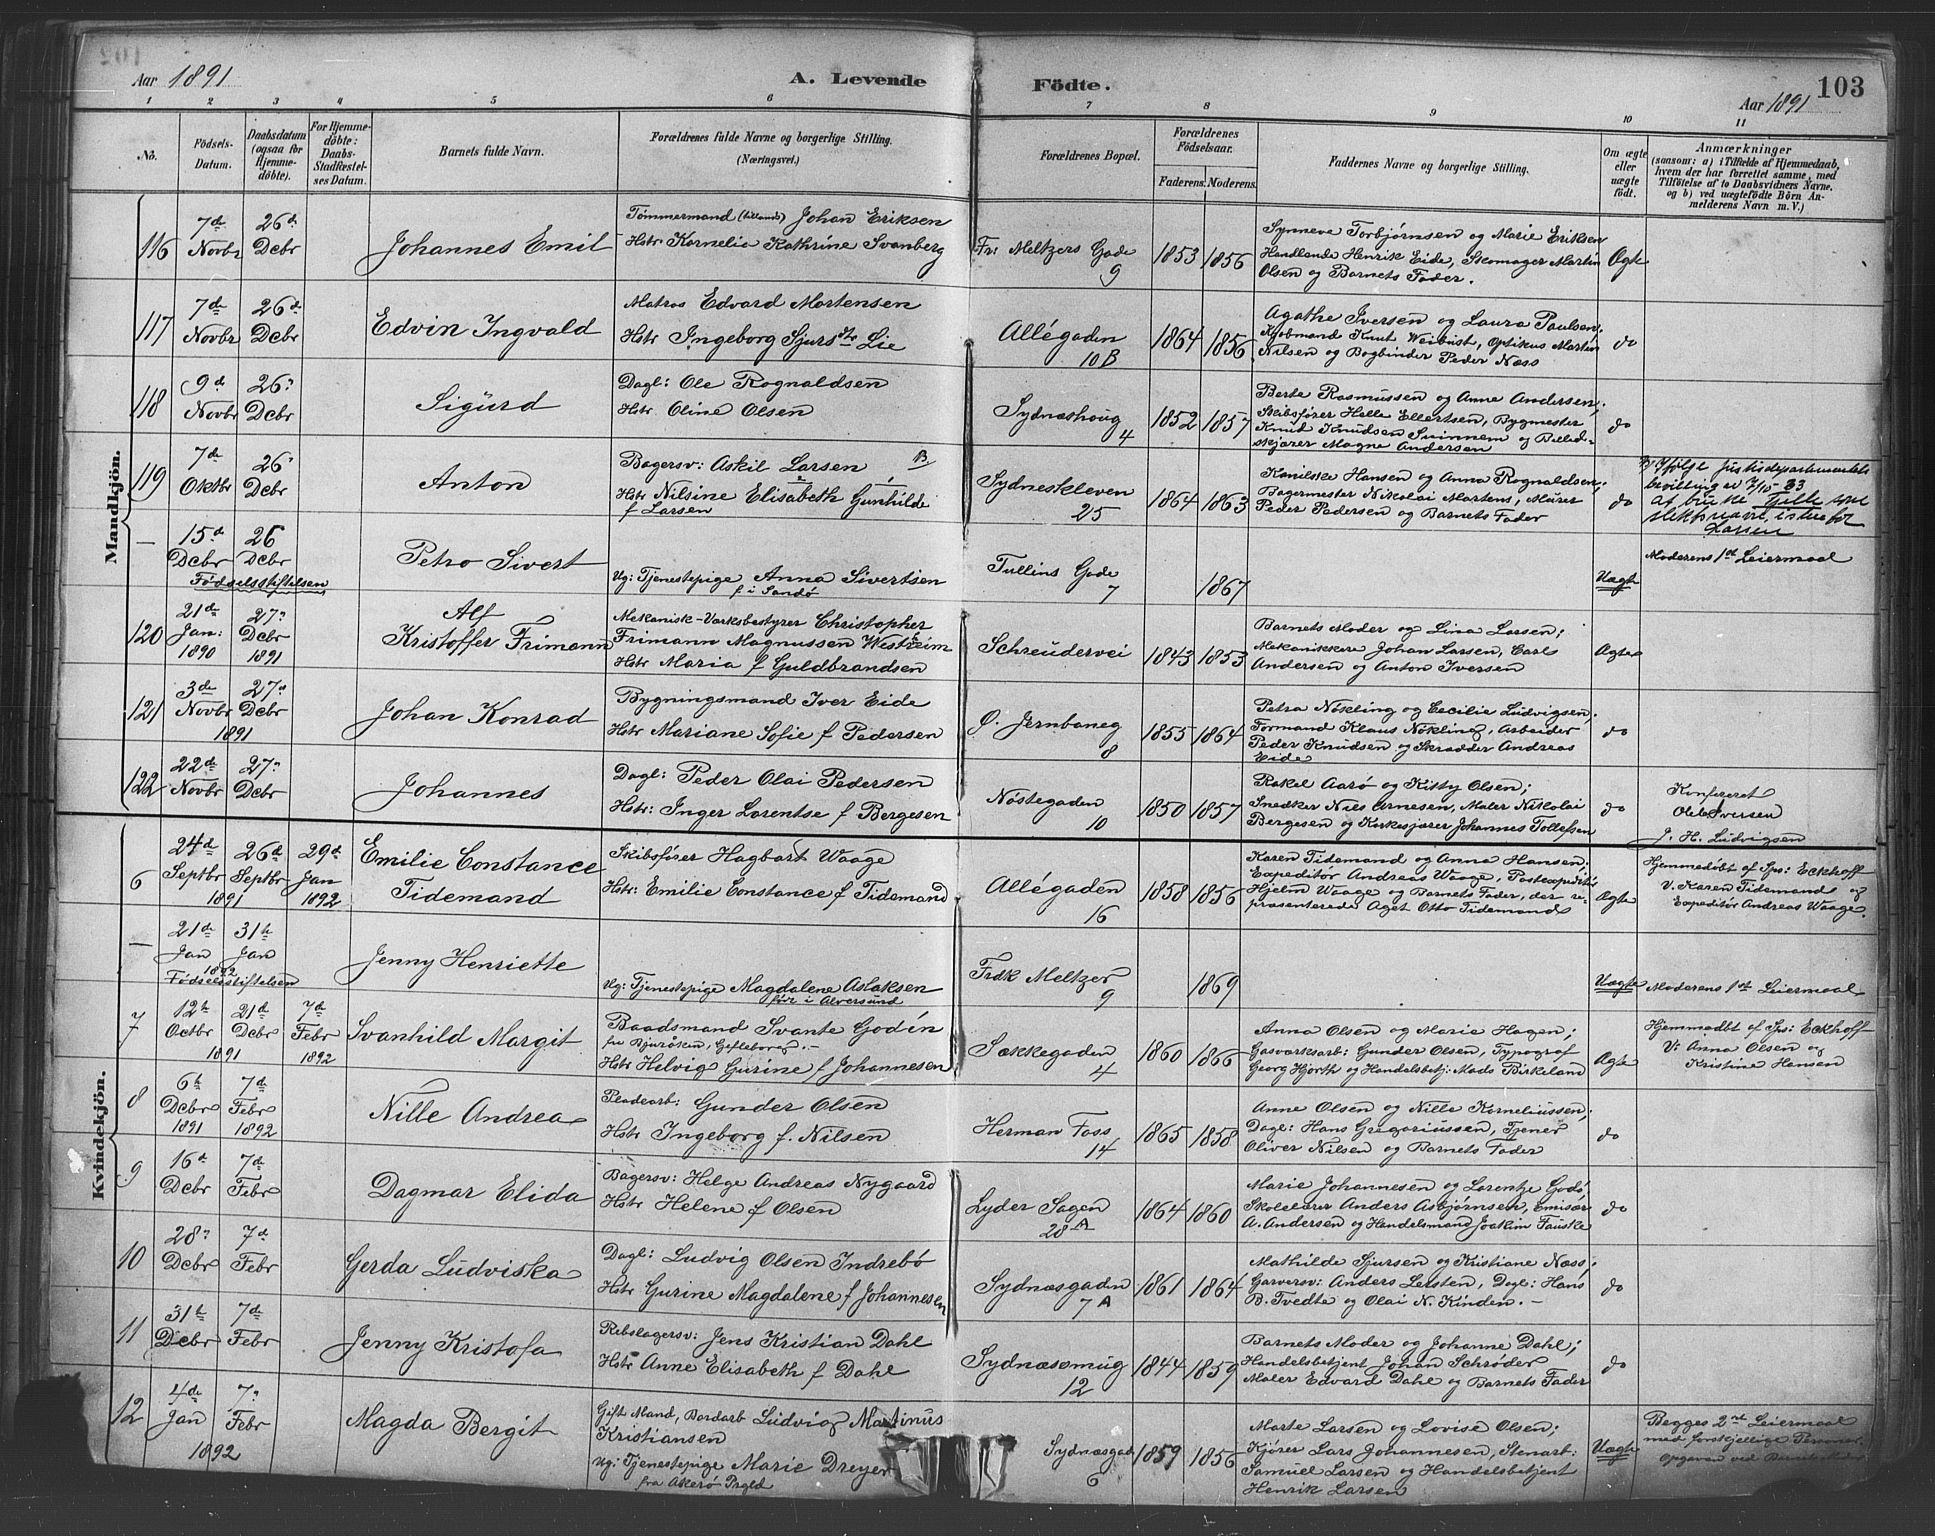 Aar 1891
A. Levende
Födte.
Aar 1891
103
1 2 3 4 5 6 7 8 9 10 11
No.
Födsels-
Datum.
Daabsdatum
(ogsaa for
Hjemme-
döbte).
For Hjemme-
döbte:
Daabs-
Stadfæstel-
ses Datum.
Barnets fulde Navn.
Forældrenes fulde Navne og borgerlige Stilling.
(Næringsvei.)
Forældrenes Bopæl.
Forældrenes
Födselsaar.
Faderens. Moderens.
Faddernes Navne og borgerlige Stilling.
Om ægte
eller
uægte
födt.
Anmærkninger
(saasom: a) i Tilfælde af Hjemmedaab,
hvem der har forrettet samme, med
Tilföielse af to Daabsvidners Navne.
og b) ved uægtefödte Börn An-
melderens Navn m. V.)
Mandkjön.
116
7de Novbr
26de Dcbr
Johannes Emil
Tømmermand (tillands) Johan Eriksen
Hstr Kornelia Kathrine Svanberg
Fr: Meltzers Gade
9
1853 1856
Synneve Torbjørnsen og Marie Eriksen
Handlende Henrik Eide, Skomager Martin
Olsen og Barnets Fader.
Ægte
117
7de Novbr
26de Dcbr
Edvin Ingvald
Matros Edvard Mortensen
Hstr Ingeborg Sjursdtr Lie
Allégaden
10 B
1864 1856
Agathe Iversen og Laura Paulsen;
Kjøbmand Knut Weibust, Optikus Martin
Nilsen og Bogbinder Peder Næss
do
118
9de Novbr
26de Dcbr
Sigurd
Dagl: Ole Rognaldsen
Hstr Oline Olsen
Sydnæshoug
4
1852 1857
Berte Rasmussen og Anne Andersen;
Skibsfører Helle Ellertsen, Bygmester
Knud Knudsen Svinnem og Billed-
skjærer Magne Andersen
do
119
7de Oktbr
26de Dcbr
Anton
Bagersv: Askil Larsen
Hstr Nilsine Elisabeth Gunhilde
f Larsen
Sydneskleven
25
1864 1863
Kanilske Hansen og Anna Rognaldsen;
Bagermester Nikolai Martens, Murer
Peder Pedersen og Barnets Fader
do
Ifølge Justisdepartementets
bevilling er 7/10-33
at bruke Tjelle som
slektsnavn, istedetfor
Larsen
—
15de Dcbr
26 Dcbr
Fødselsstiftelsen
Petra Sivert
Ug: Tjenestepige Anna Sivertsen
f i Sandø
Tullins Gade
7
1867
Uægte
Moderens 1ste Leiermaal
120
21de Jan: 1890
27de Dcbr 1891
Alf
Kristoffer Frimann
Mekanisk-Værksbestyrer Christopher
Frimann Magnussen Westreim
Hstr Maria f Guldbrandsen
Schreudervei
1843 1853
Barnets Moder og Lina Larsen;
Mekanikkere Johan Larsen, Carl
Andersen og Anton Iversen
Ægte
121
3de Novbr
27de Dcbr
1891
Johan Konrad
Bygningsmand Iver Eide
Hstr Mariane Sofie f Pedersen
Ø. Jernbaneg
8
1855 1864
Petra Nökling og Cecilie Ludvigsen;
Formand Klaus Nökling, Arbeider
Peder Knudsen og Skrædder Andreas
Eide
do
122
22de Novbr
27de Dcbr
Johannes
Dagl: Peder Olai Pedersen
Hstr: Inger Lorentse f Bergesen
Nøstegaden
10
1850 1857
Rakel Aarø og Kitty Olsen;
Snedker Nils Arnesen, Maler Nikolai
Bergesen og Korkeskjærer Johannes Tollefsen
do
Konfereret
Ole Iversen
J. H. Ludvigsen
Kvindekjön.
6
24de Septbr
26de Septbr
1891
29de Jan 1892
Emilie Constance
Tidemand
Skibsfører Hagbart Waage
Hstr: Emilie Constance f Tidemand
Allégaden
16
1858 1856
Karen Tidemand og Anna Hansen;
Expeditör Andreas Waage, Postexpeditör
Hjelm Waage og Barnets Fader, der re-
præsenterede Aget Otto Tidemand
Ægte
Hjemmedøbt af Sps: Eckhoff
V. Karen Tidemand og
Expeditör Andreas Waage.
—
21de Jan
31te Jan
1892
Fødselsstiftelsen
Jenny Henriette
Ug: Tjenestepige Magdalene Aslaksen
født i Alversund
Fredk Meltzer
9
1869
Uægte
Moderens 1ste Leiermaal
7
12te Octbr
21de Dcbr
1891
7de Febr 1892
Svanhild Margit
Baadsmand Svante Godén
fra Bjuråken, Gefleborg.—
Hstr Helvig Gurine f Johannesen
Sækkegaden
4
1860 1866
Anna Olsen og Marie Hagen;
Gasværksarb: Gunder Olsen, Typograf
Georg Hjorth og Handelsbetj: Mads Birkeland
Ægte
Hjemmedøbt af Sps: Eckhoff
V: Anna Olsen og
Kristine Hansen
8
6te Dcbr 1891
7de Febr 1892
Nille Andrea
Pladearb: Gunder Olsen
Hstr Ingeborg f. Nilsen
Herman Foss
14
1865 1858
Anne Olsen og Nille Korneliussen;
Dagl: Hans Gregoriussen, Tjener
Oliver Nilsen og Barnets Fader
do
9
16de Dcbr
7de Febr
Dagmar Elida
Bagersv: Helge Andreas Nygaard
Hstr Helene f Olsen
Lyder Sagen
28 A
1864 1860
Marie Johannesen og Lorentze Godø
Skolelærer Anders Asbjørnsen, Emisær
A. Andersen og Handelsmand Joakim Fauske
do
10
28de Dcbr
7de Febr
Gerda Ludviska
Dagl: Ludvig Olsen Indrebø
Hstr Gurine Magdalene f Johannesen
Sydnæsgaden
7 A
1861 1864
Mathilde Sjursen og Kristiane Næss;
Garversv: Anders Lersten, Dagl: Hans
B. Tvedte og Olai N. Kinden.—
do
11
31te Dcbr
7de Febr
Jenny Kristofa
Rebslagersv: Jens Kristian Dahl
Hstr Anne Elisabeth f Dahl
Sydnæssmug
12
1844 1859
Barnets Moder og Johanne Dahl;
Handelsbetjent Johan Schrøder
Maler Edvard Dahl og Barnets Fader
do
12
4de Jan
7de Febr
1892
Magda Bergit
Gift Mand, Bordarb Ludvig Martinus
Kristiansen
Ug: Tjenestepige Marie Dreyer
fra Akerø Prgld
Sydnæsgad
6
1859 1856
Marte Larsen og Lovise Olsen;
Kjører Lars Johannesen, Stenarb:
Samuel Larsen og Handelsbetjent
Henrik Larsen
Uægte
Begges 2det Leiermaal
med forskjellige Personer.
Opgaven ved Barnets Moder